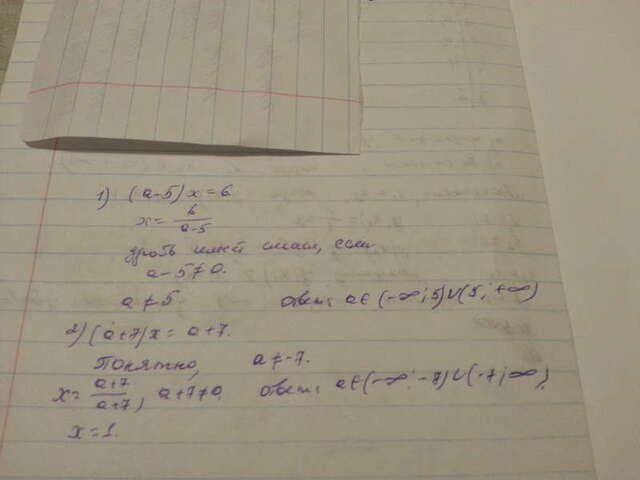 1) (a-5)x=6.
x= 6/(a-5)
дробь имеет смысл, если
a-5≠0.
a≠5 ответ: a∈(-∞;5)∪(5;+∞)
2) (a+7)x= a+7.
Понятно, a≠-7.
x= (a+7)/(a+7), a+7≠0 ответ: a∈(-∞;-7)∪(-7;∞)
x=1.